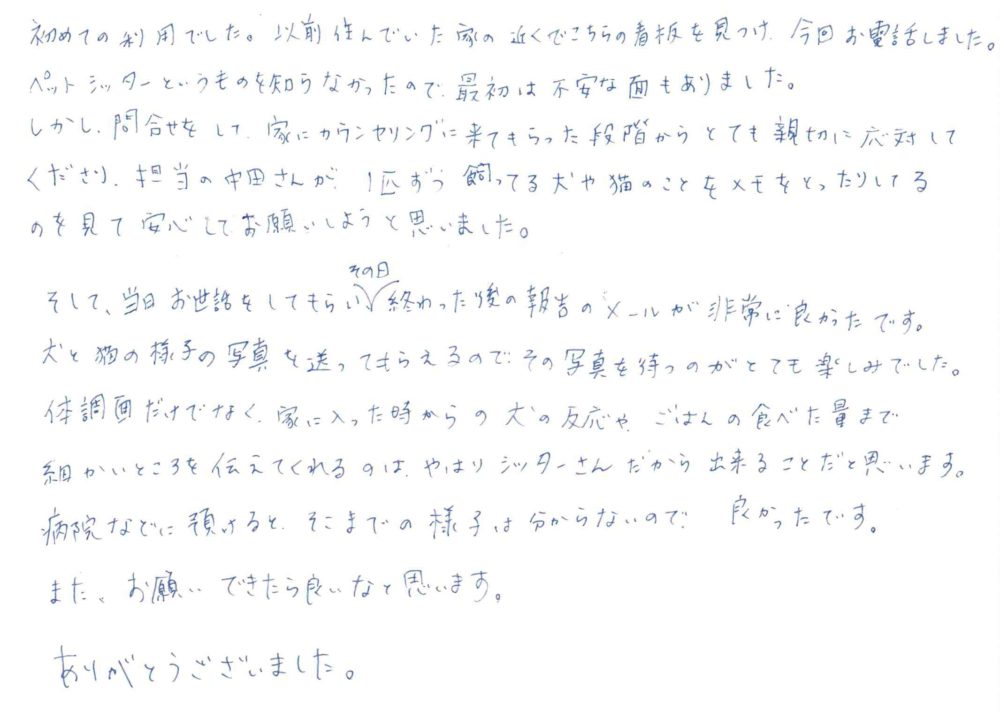 初めての利用でした。以前住んでいた家の近くでこちらの看板を見つけ、今回お電話しました。
ペットシッターというものを知らなかったので、最初は不安な面もありました。
しかし、問合せをして、家にカウンセリングに来てもらった段階からとても親切に応対して
くださり、担当の中田さんが、1匹ずつ飼ってる犬や猫のことをメモをとったりしてる
のを見て安心してお願いしようと思いました。
そして、当日お世話をしてもらいその日終わった後の報告のメールが非常に良かったです。
犬と猫の様子の写真を送ってもらえるので、その写真を待つのがとても楽しみでした。
体調面だけでなく、家に入った時からの犬の反応や、ごはんの食べた量まで
細かいところを伝えてくれるのは、やはりシッターさんだから出来ることだと思います。
病院などに預けると、そこまでの様子は分からないので、良かったです。
また、お願いできたら良いなと思います。
ありがとうございました。